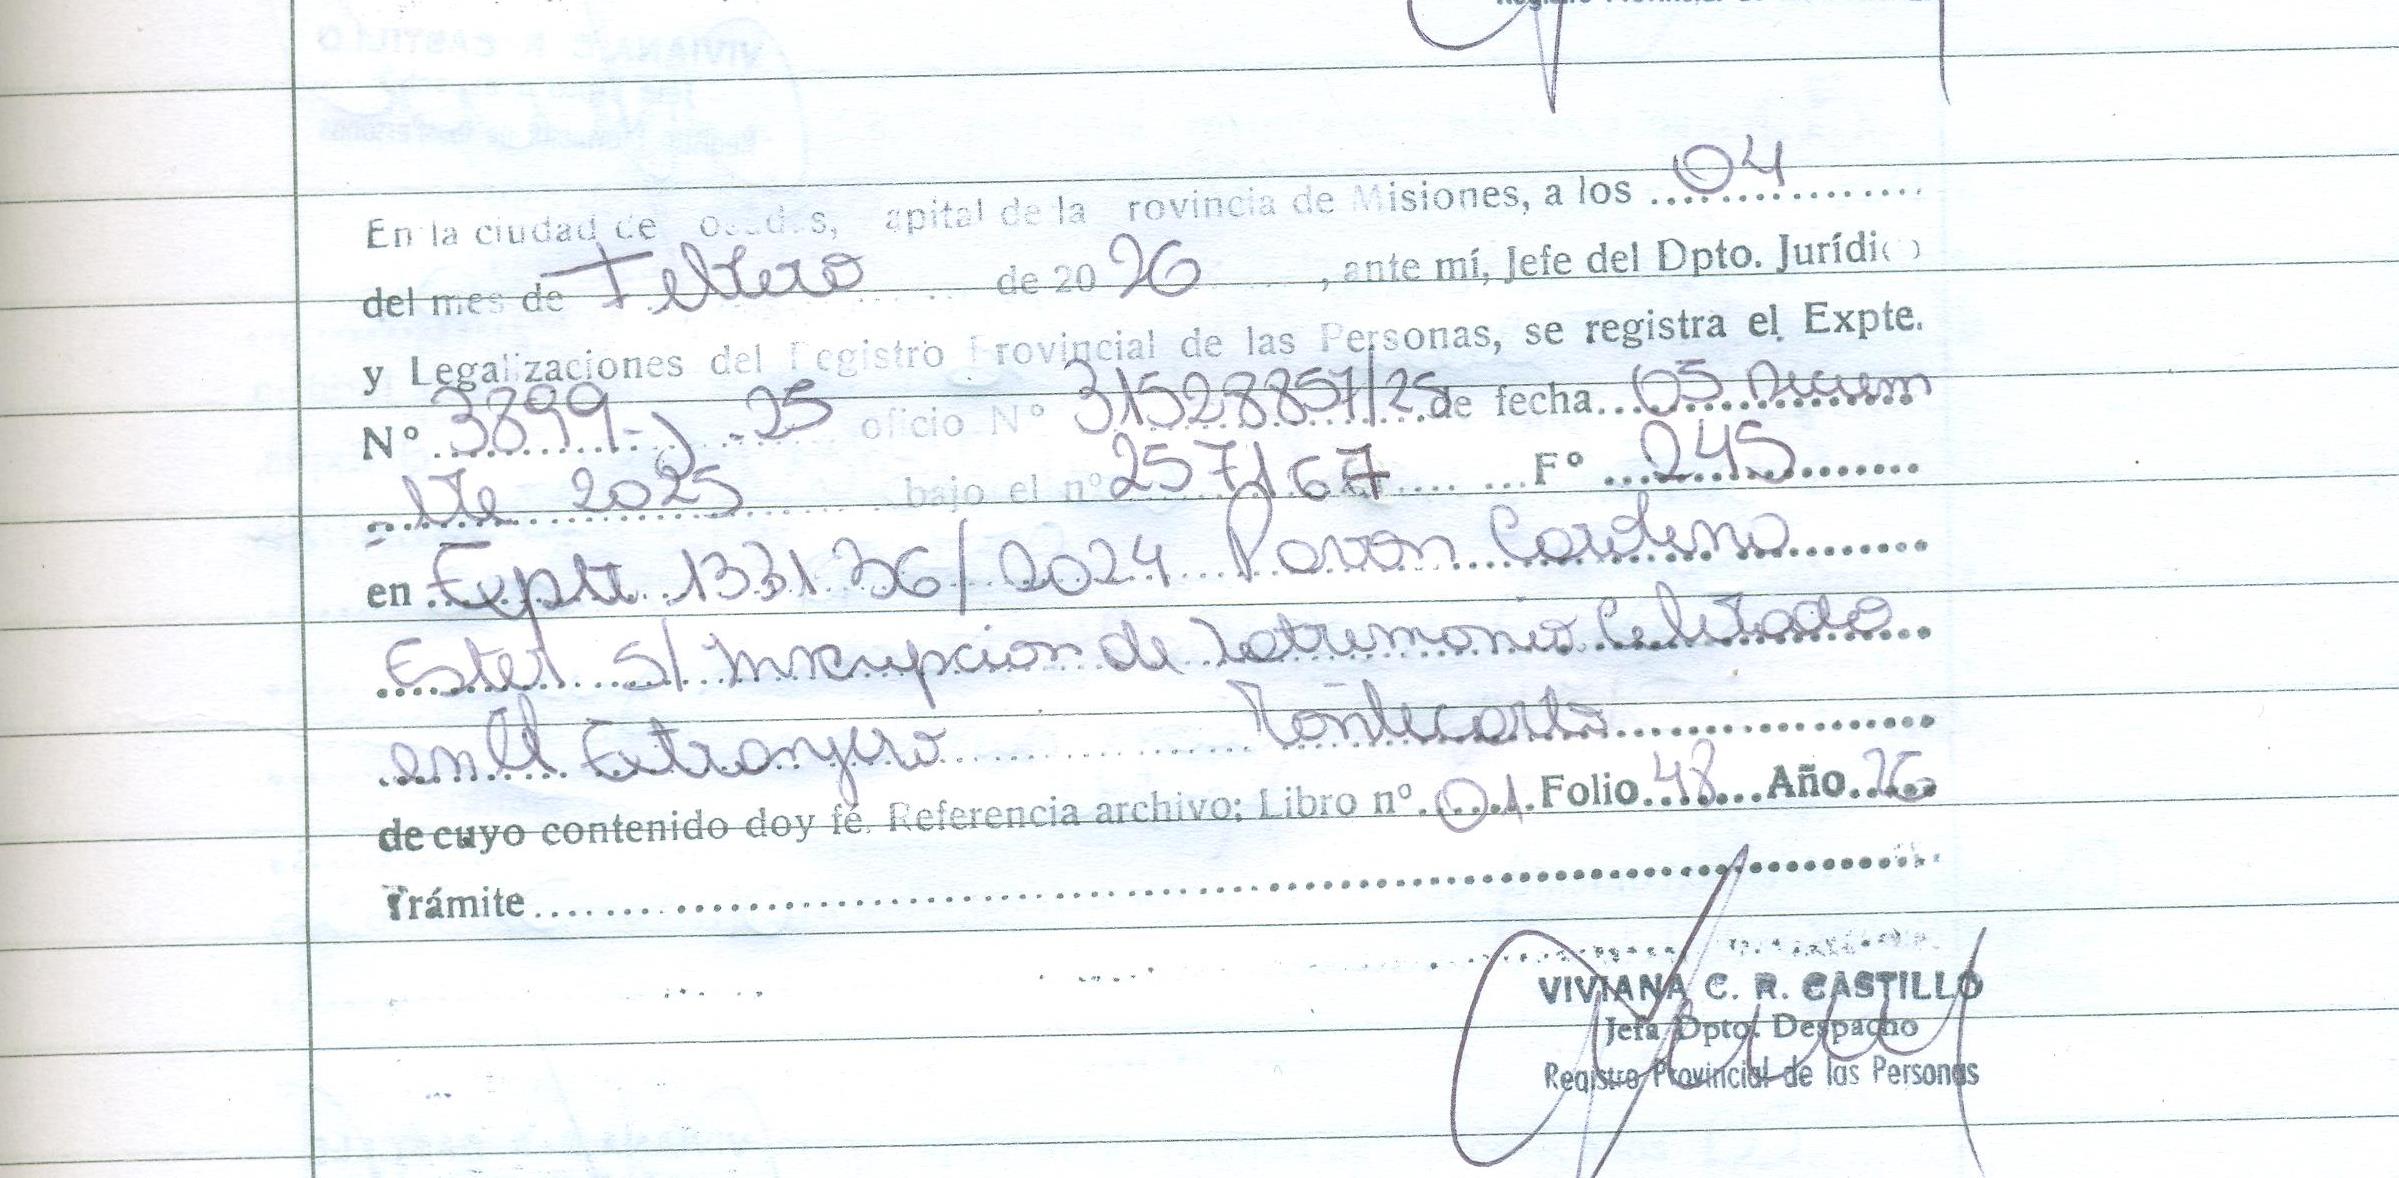 En la ciudad de osadas, apital de la rovincia de Misiones, a los 04
del mes de Febrero de 2026, ante mí, Jefe del Dpto. Jurídico
y Legalizaciones del Registro Provincial de las Personas, se registra el Expte.
Nº 3899-J-25 oficio Nº 31528857/25 de fecha 05 Diciem
-bre 2025 bajo el nº 257/67 Fº 245
en Expte 133136/2024 Pavon
Ester s/ Inscripcion de Matrimonio Celebrado
en el Extranjero Montecarlo
de cuyo contenido doy fé. Referencia archivo: Libro nº 01 Folio 48 Año 26
Trámite
VIVIANA C. R. CASTILLO
Jefa Dpto. Despacho
Registro Provincial de las Personas